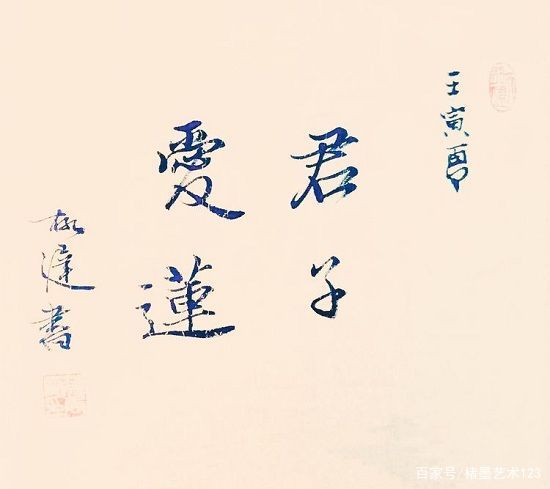 壬寅夏
君子
愛蓮
書
百家号/楮墨艺术123